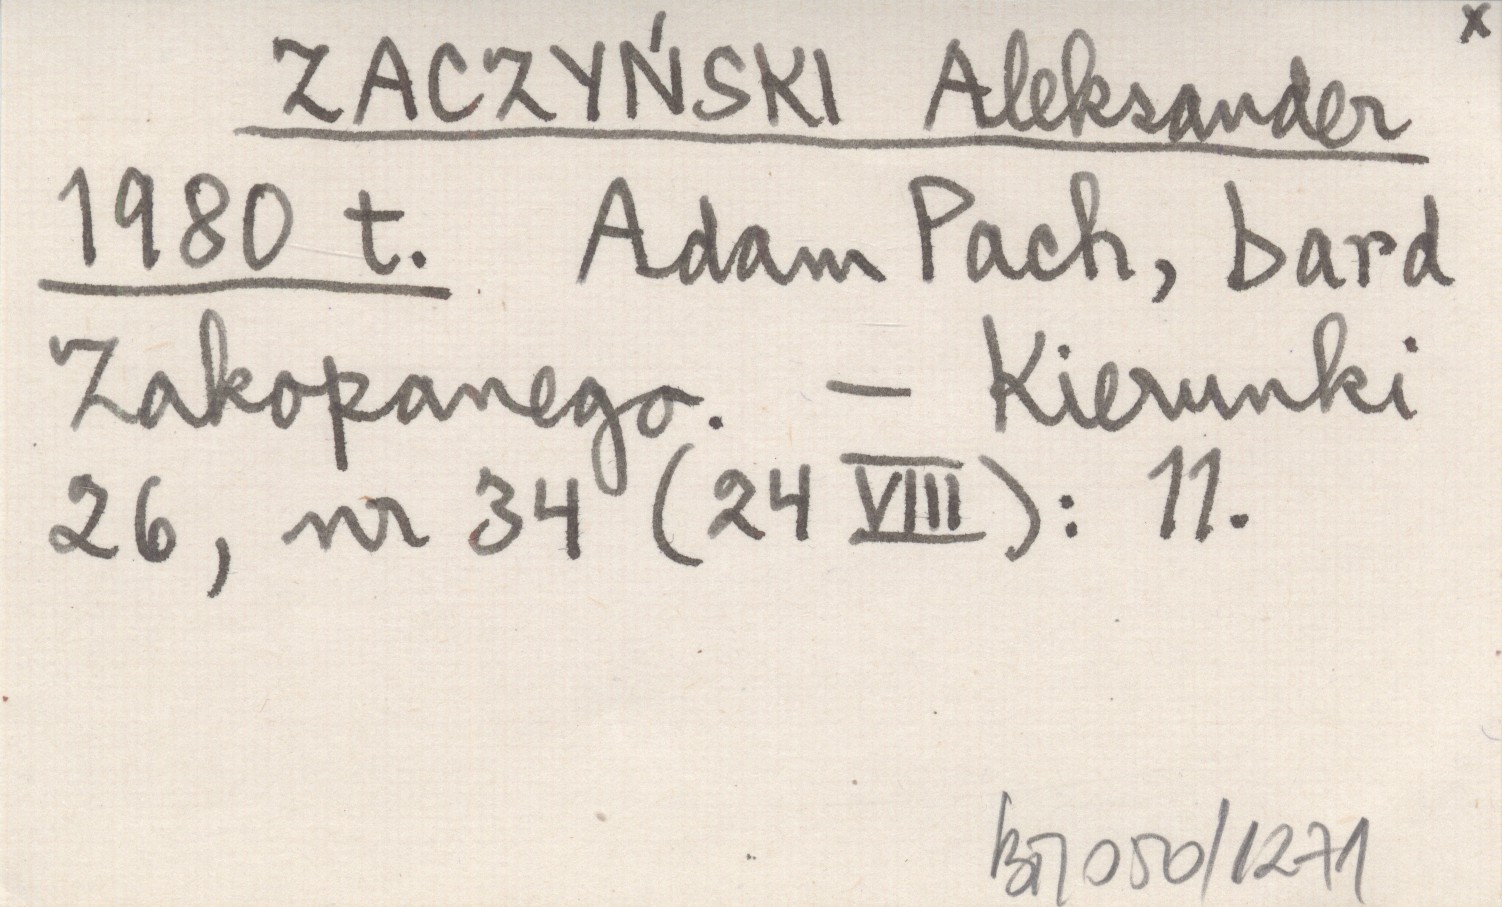 x
ZACZYŃSKI Aleksander
1980 t. Adam Pach, bard
Zakopanego. – Kierunki
26, nr 34 (24 VIII): 11.
050/1271